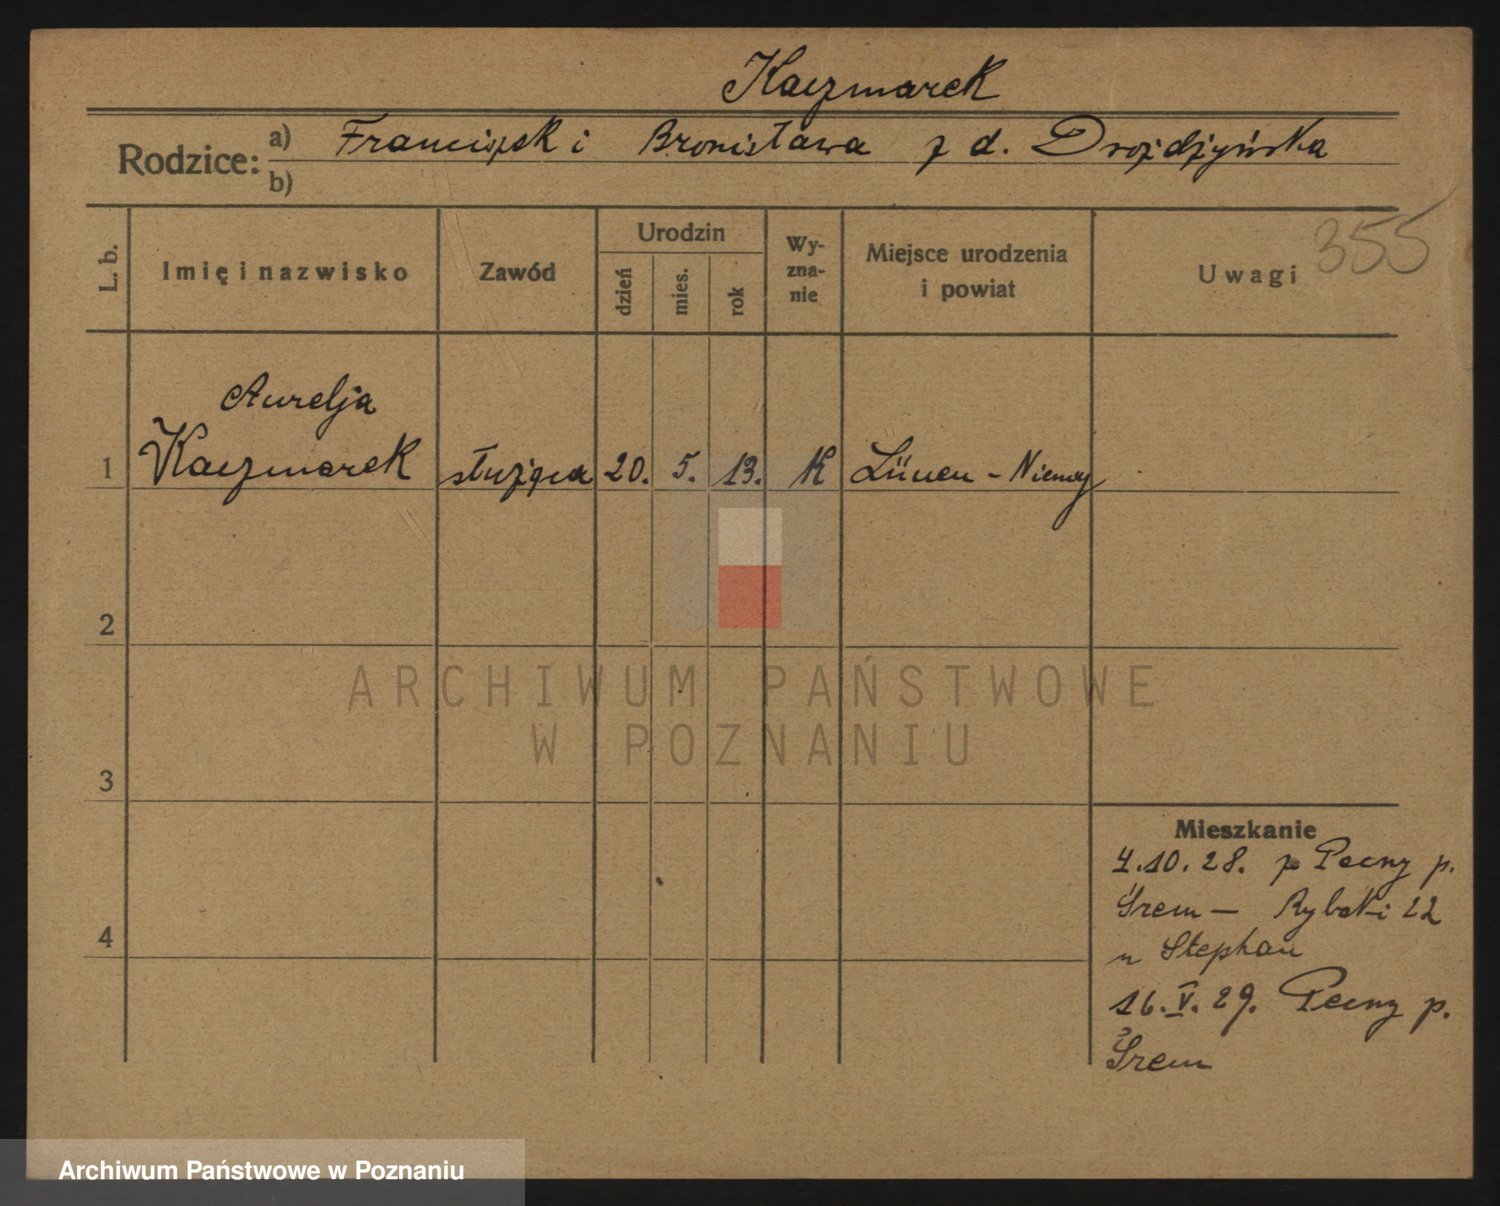 Kaczmarek
Rodzice:
a) Franciszek i Bronisława z d. Drożdżyńska
b)
L. b.
Imię i nazwisko
Zawód
Urodzin
dzień
mies.
rok
Wy-
zna-
nie
Miejsce urodzenia
i powiat
Uwagi
355
Aurelja
1 Kaczmarek służąca 20. 5. 13. K Lünen - Niemcy
2
3
4
Mieszkanie
4.10.28. z Pecny p.
Śrem - Rybaki 22
u Stephan
16.V.29. Pecny p.
Śrem
ARCHIWUM PAŃSTWOWE
W POZNANIU
Archiwum Państwowe w Poznaniu